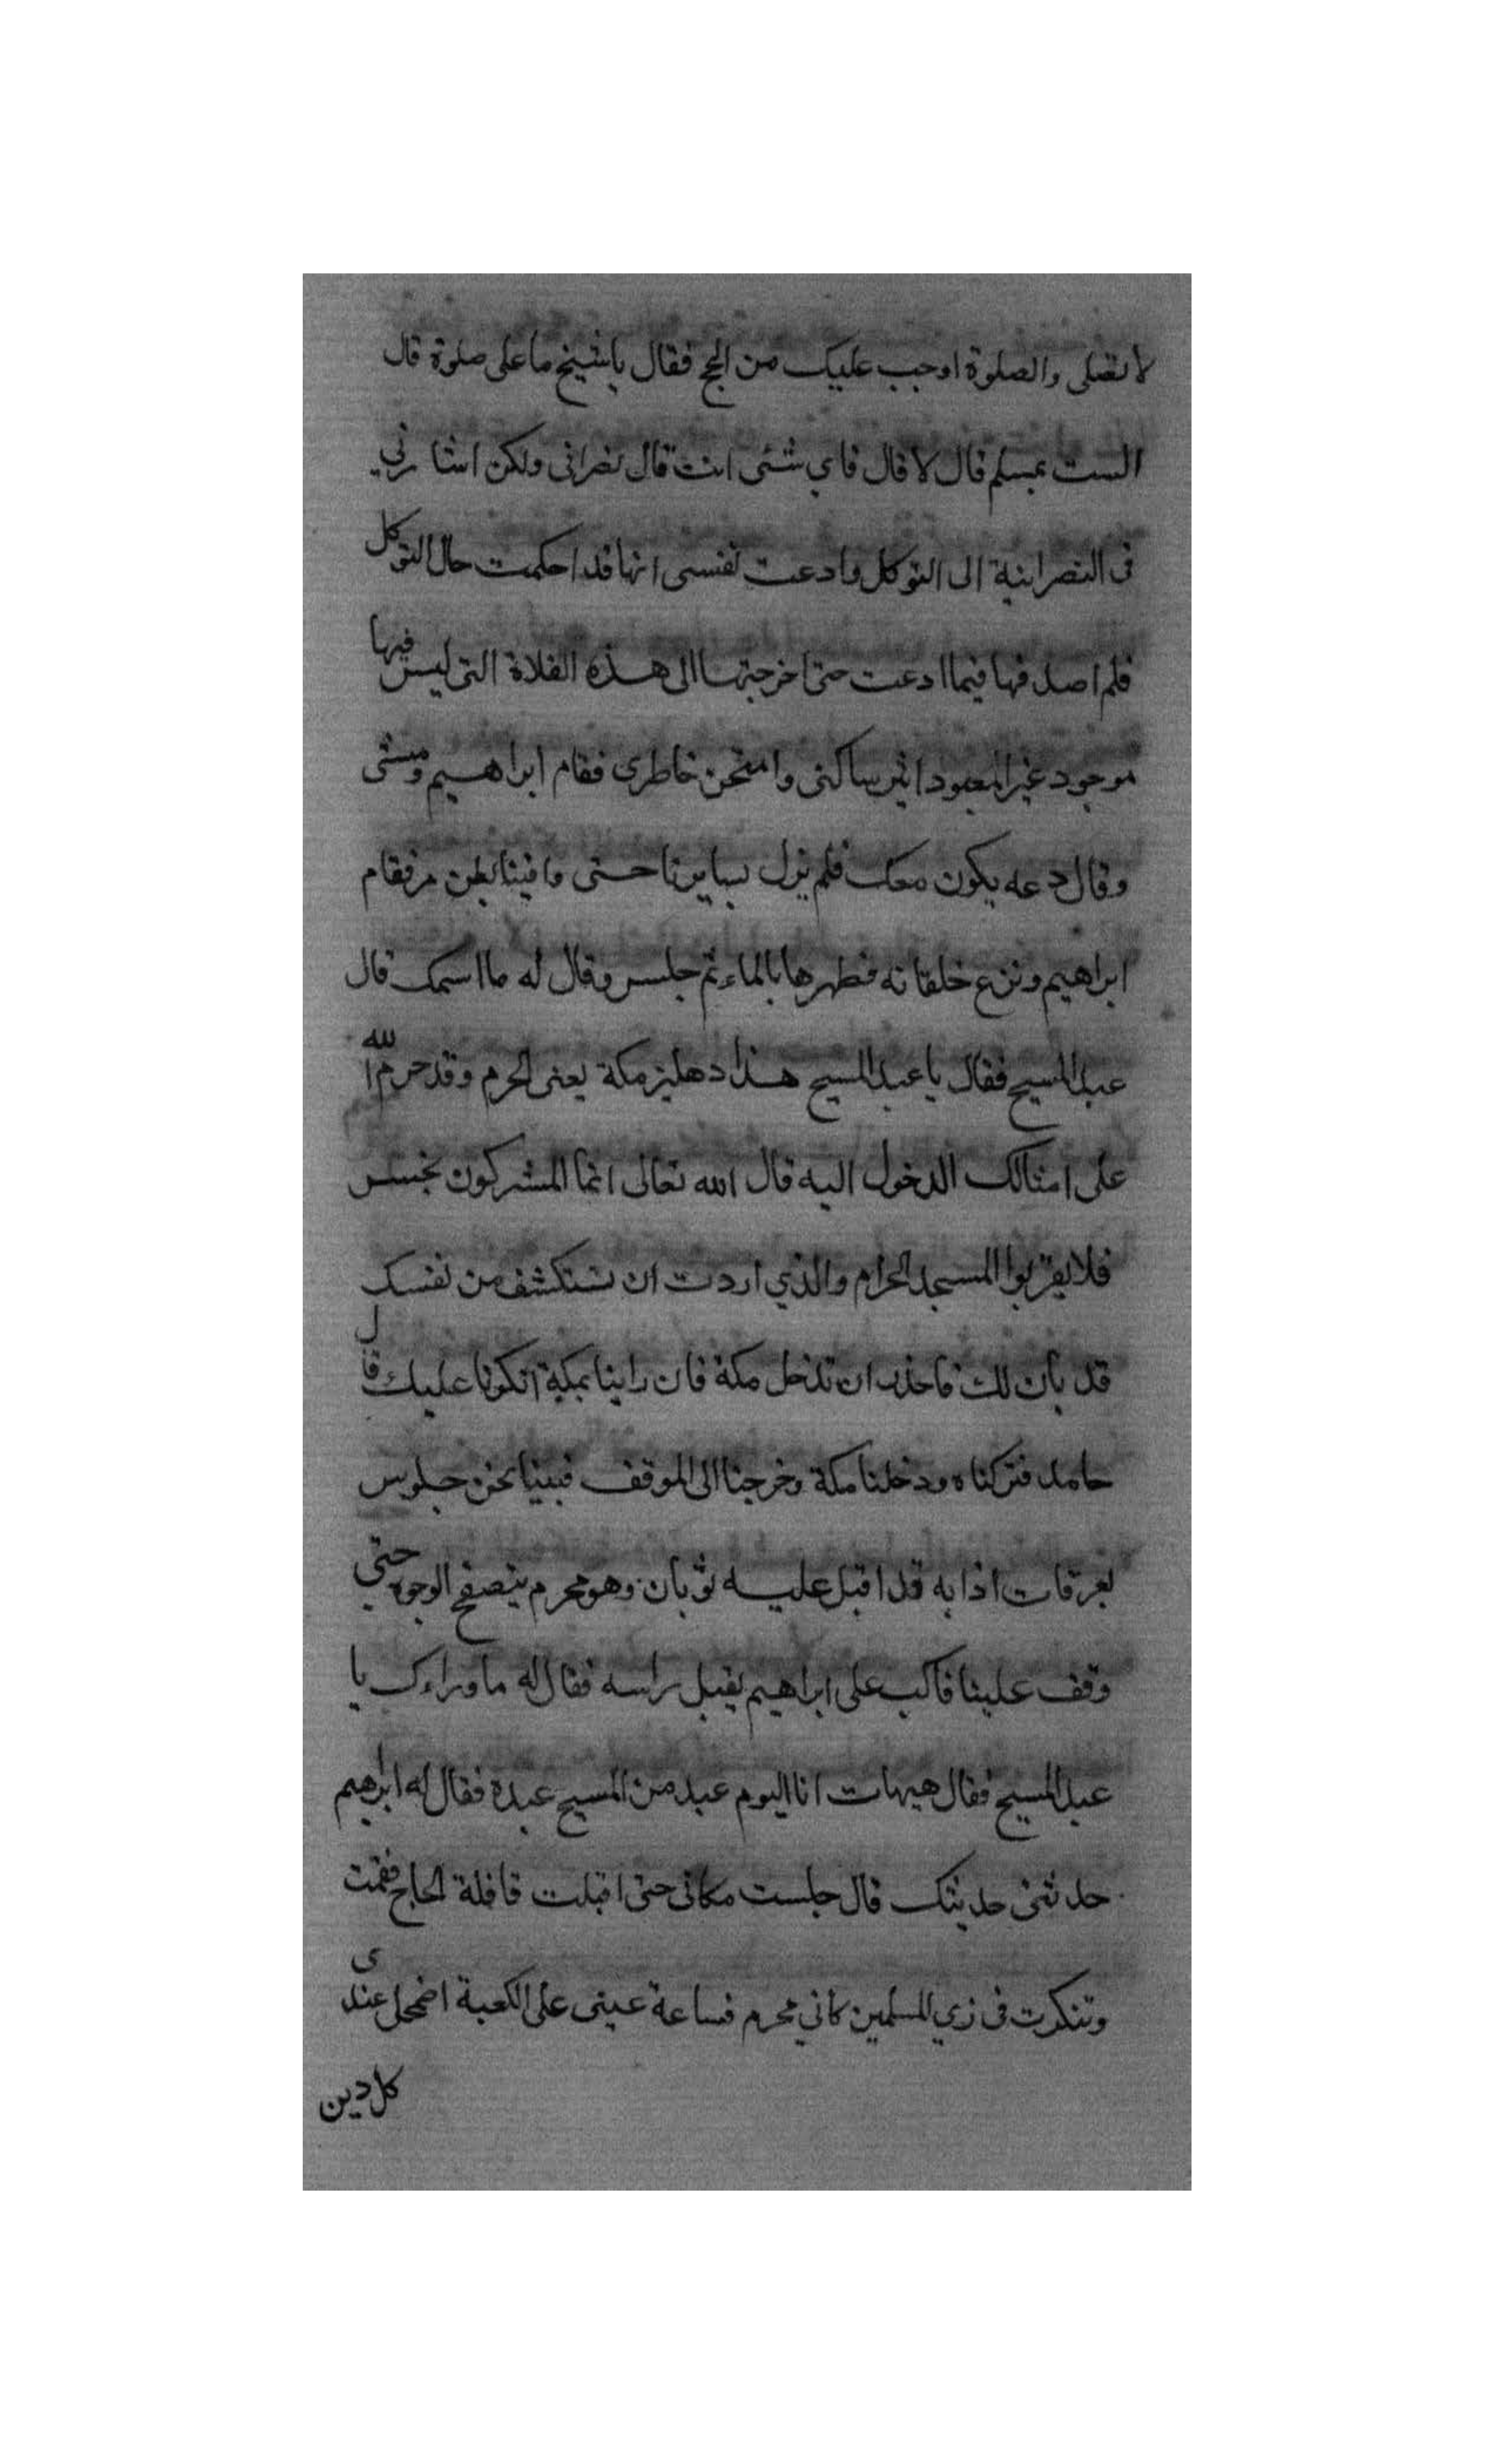 لا تصلى والصلوة اوجب عليك من الحج فقال ياشيخ ما على صلوة قال
الست بمسلم قال لا قال فاي شئى انت قال نصرانى ولكن اشارني
فى النصرانية الى التوكل وادعت نفسى انها قد احكمت حال التوكل
فلم اصدقها فيما ادعت حتى اخرجتها الى هذه الفلاة التى ليس فيها
موجود غير المعبود اثير ساكنى وامتحن خاطرى فقام ابراهيم ومشى
وقال دعه يكون معك فلم يزل يسايرنا حتى وافينا بطن مر فقام
ابراهيم ونزع خلقانه فطهرها بالماء ثم جلس وقال له ما اسمك قال
عبد المسيح فقال يا عبد المسيح هذا دهليز مكة يعنى الحرم وقد حرم الله
على امثالك الدخول اليه قال الله تعالى انما المشركون نجس
فلا يقربوا المسجد الحرام والذي اردت ان تستكشف من نفسك
قد بان لك فاحذر ان تدخل مكة فان راينا بمكة انكرنا عليك قال
حامد فتركناه ودخلنا مكة وخرجنا الى الموقف فبينا نحن جلوس
بعرفات اذا به قد اقبل عليه ثوبان وهو محرم يتصفح الوجوه حتي
وقف علينا فاكب على ابراهيم يقبل راسه فقال له ما وراءك يا
عبد المسيح فقال هيهات انا اليوم عبد من المسيح عبده فقال له ابراهيم
حدثنى حديثك قال جلست مكانى حتى اقبلت قافلة الحاج فقمت
وتنكرت فى زي المسلمين كاني محرم فساعة عينى على الكعبة اضمحل عندى
كل دين